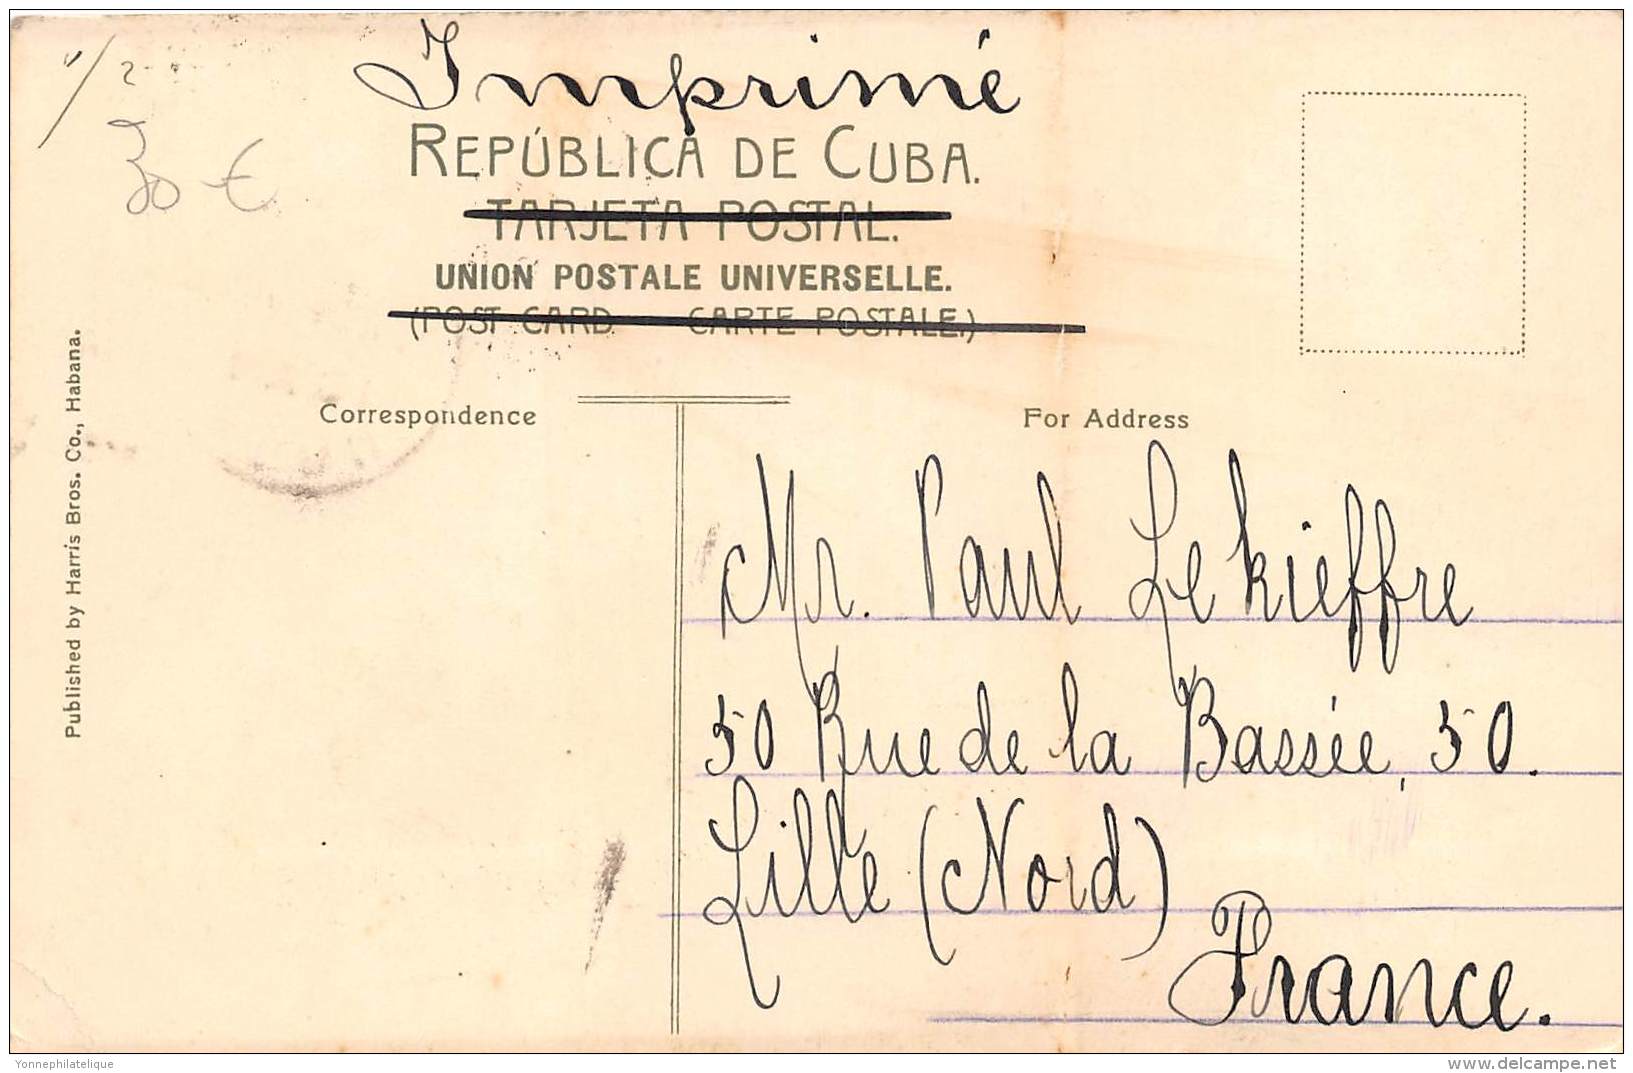 Imprimé
1/2
30 €
REPÚBLICA DE CUBA.
TARJETA POSTAL.
UNION POSTALE UNIVERSELLE.
(POST CARD CARTE POSTALE.)
Correspondence
For Address
Published by Harris Bros. Co., Habana.
Mr. Paul Lekieffre
50 Rue de la Bassée, 50.
Lille (Nord)
France.
Yonnephilatelique
www.delcampe.net